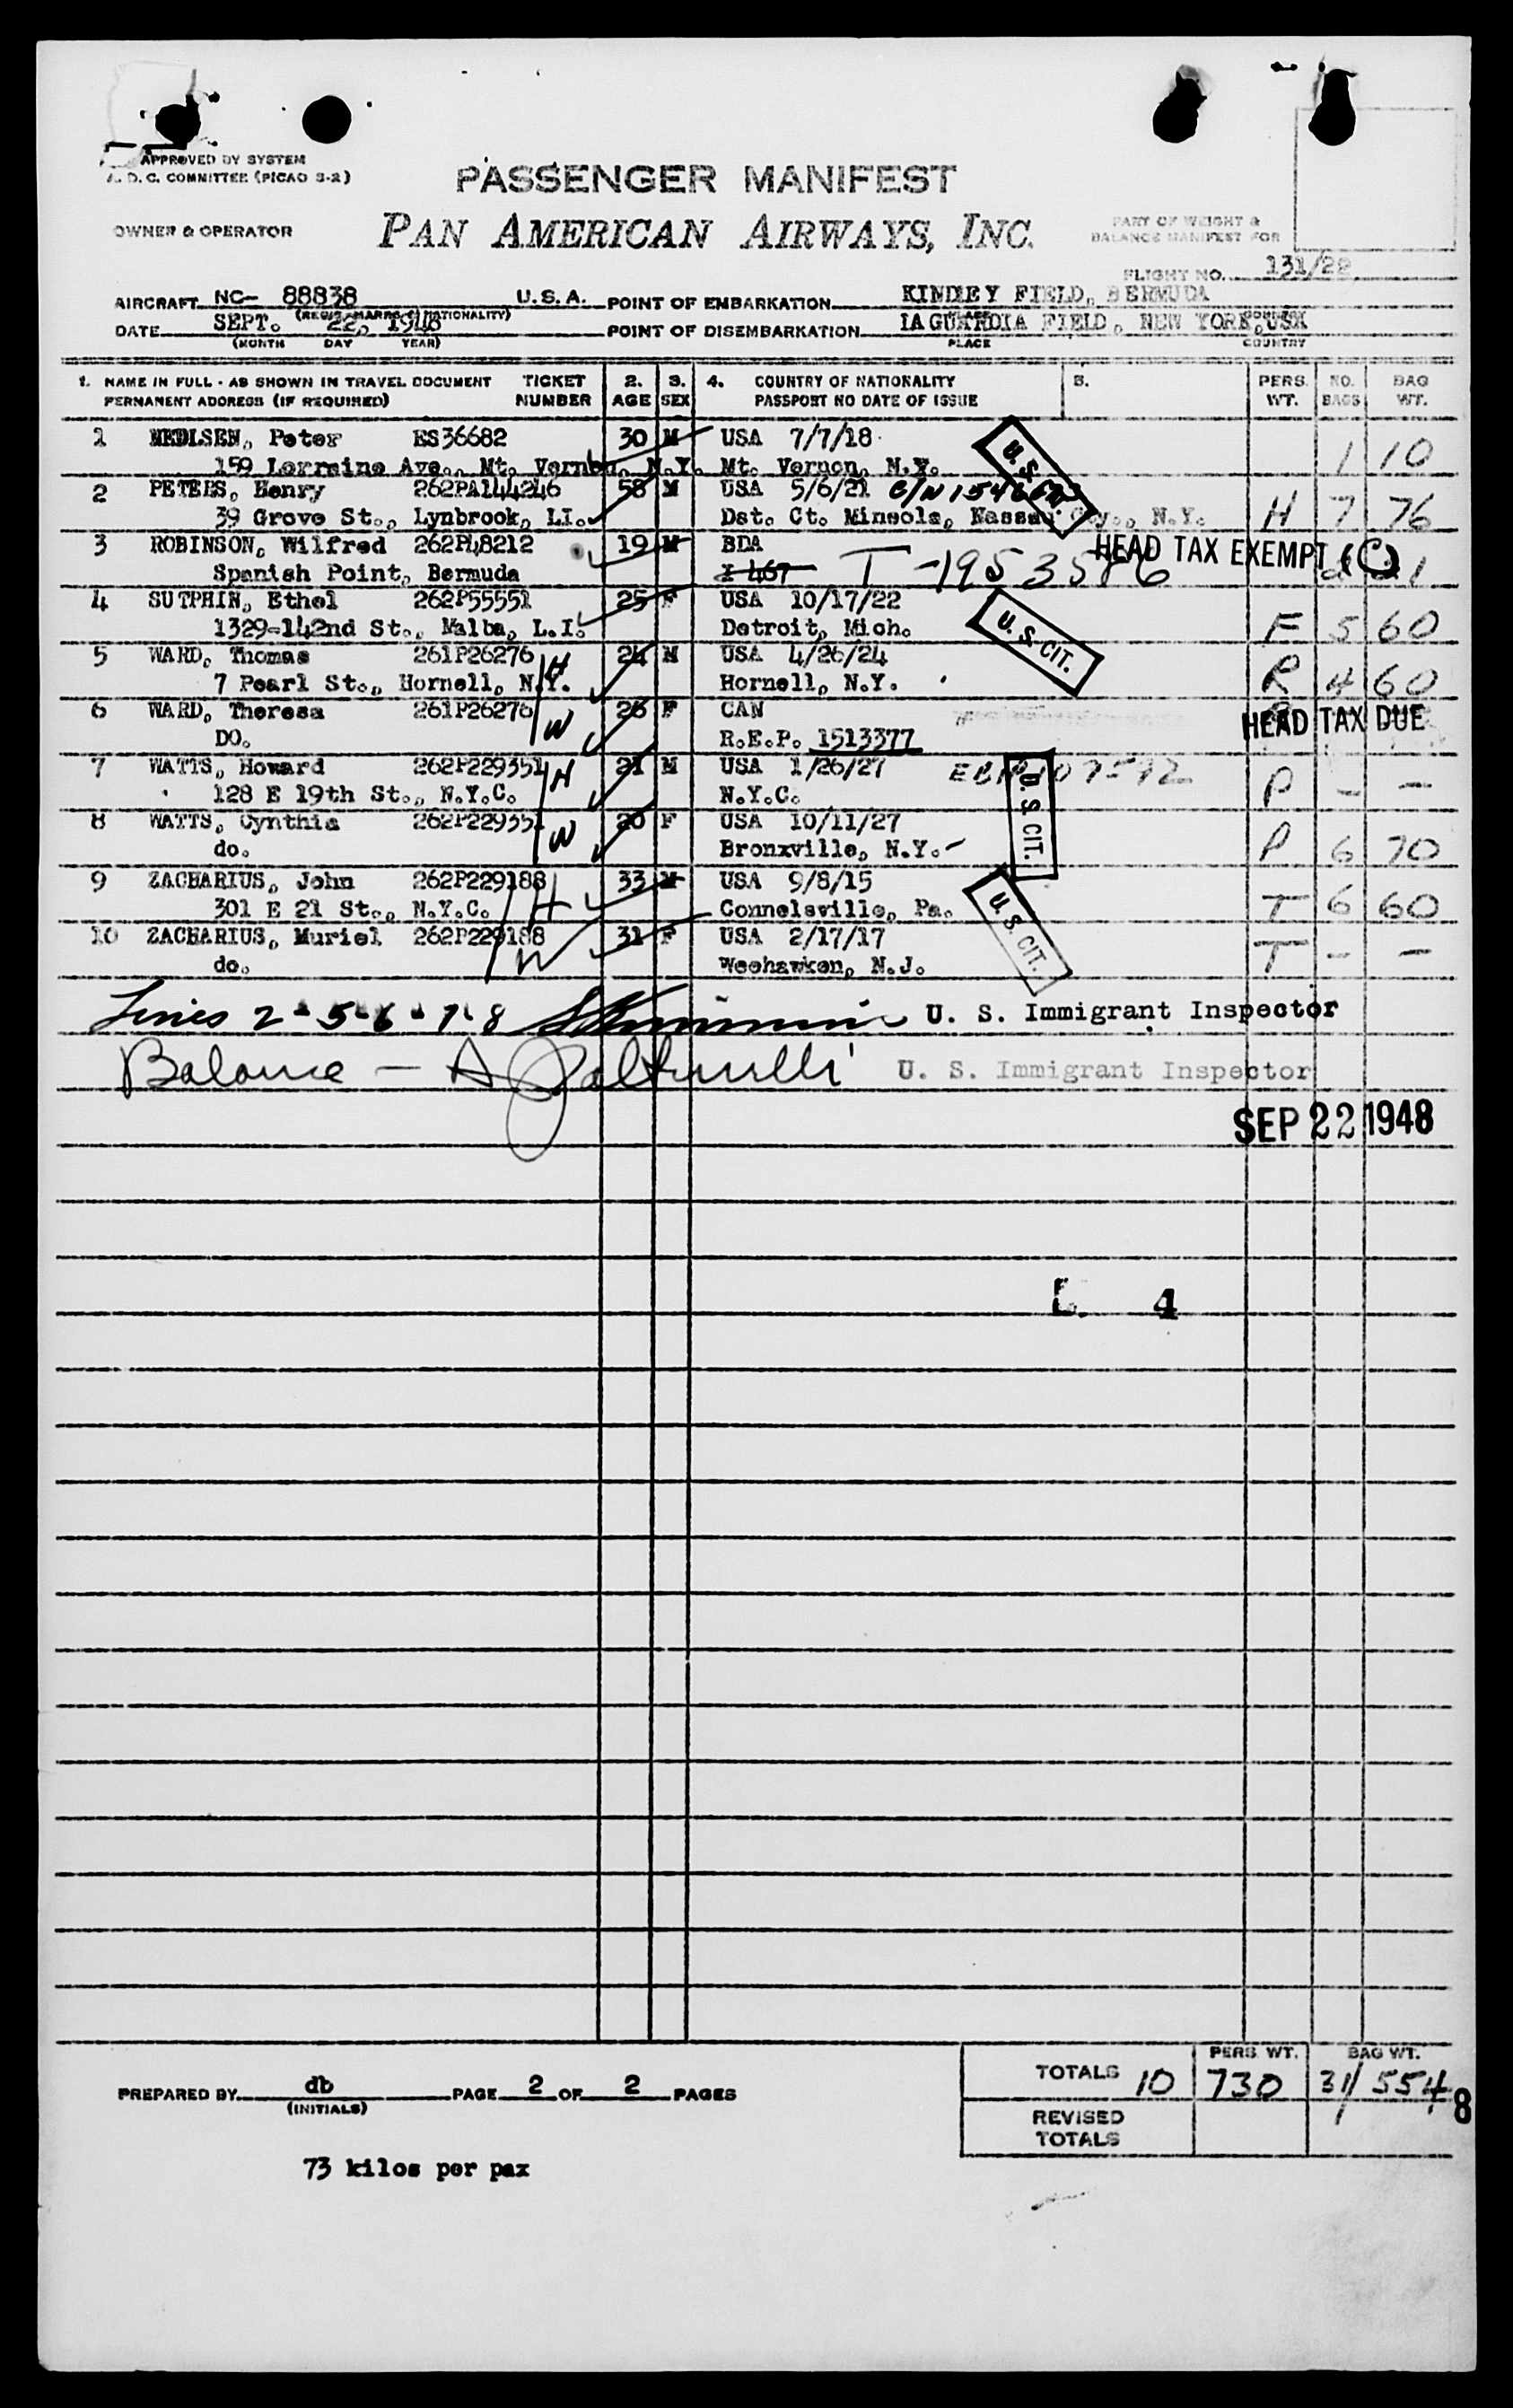 APPROVED BY SYSTEM
A. D. C. COMMITTEE (PICAO S-2)
PASSENGER MANIFEST
OWNER & OPERATOR
PAN AMERICAN AIRWAYS, INC.
PART OF WEIGHT &
BALANCE MANIFEST FOR
FLIGHT NO. 131/22
AIRCRAFT NC- 88838 U.S.A. POINT OF EMBARKATION KINDLEY FIELD, BERMUDA
(REGIS. MARKS & NATIONALITY)
DATE SEPT. 22, 1948 POINT OF DISEMBARKATION LAGUARDIA FIELD, NEW YORK, USA
(MONTH DAY YEAR) PLACE COUNTRY
1. NAME IN FULL - AS SHOWN IN TRAVEL DOCUMENT TICKET 2. 3. 4. COUNTRY OF NATIONALITY 5. PERS. NO. BAG
PERMANENT ADDRESS (IF REQUIRED) NUMBER AGE SEX PASSPORT NO DATE OF ISSUE WT. BAGS WT.
1 Peter ES36682 30 M USA 7/7/18 1 10
159 Lorraine Ave., Mt. Vernon, N.Y. Mt. Vernon, N.Y.
U.S.
2 PETERS, Henry 262PA144246 58 M USA 5/6/21 C/N H 7 76
39 Grove St., Lynbrook, LI. Dst. Ct. Mineola, Nassau Cty., N.Y.
3 ROBINSON, Wilfred 262P48212 19 M BDA HEAD TAX EXEMPT (C)
Spanish Point, Bermuda I 467 21
4 SUTPHIN, Ethel 262P55551 25 F USA 10/17/22 F 5 60
1329-142nd St., Malba, L.I. Detroit, Mich.
U. S. CIT.
5 WARD, Thomas 261P26276 H 24 M USA 4/26/24 R 4 60
7 Pearl St., Hornell, N.Y. Hornell, N.Y.
6 WARD, Theresa 261P26276 W 26 F CAN HEAD TAX DUE
DO. R.E.P. 1513377
7 WATTS, Howard 262P229351 H 21 M USA 1/26/27 P - -
128 E 19th St., N.Y.C. N.Y.C.
U. S. CIT.
8 WATTS, Cynthia 262P229351 W 20 F USA 10/11/27 P 6 70
do. Bronxville, N.Y.
9 ZACHARIUS, John 262P229188 H 33 M USA 9/8/15 T 6 60
301 E 21 St., N.Y.C. Connelsville, Pa.
U. S. CIT.
10 ZACHARIUS, Muriel 262P229188 W 31 F USA 2/17/17 T - -
do. Weehawken, N.J.
Lines 2-5-6-7-8 U. S. Immigrant Inspector
Balance - U. S. Immigrant Inspector
SEP 22 1948
L. 4
TOTALS 10 PERS WT. 730 BAG WT. 31/554
8
PREPARED BY db PAGE 2 OF 2 PAGES
(INITIALS)
REVISED
TOTALS
73 kilos per pax